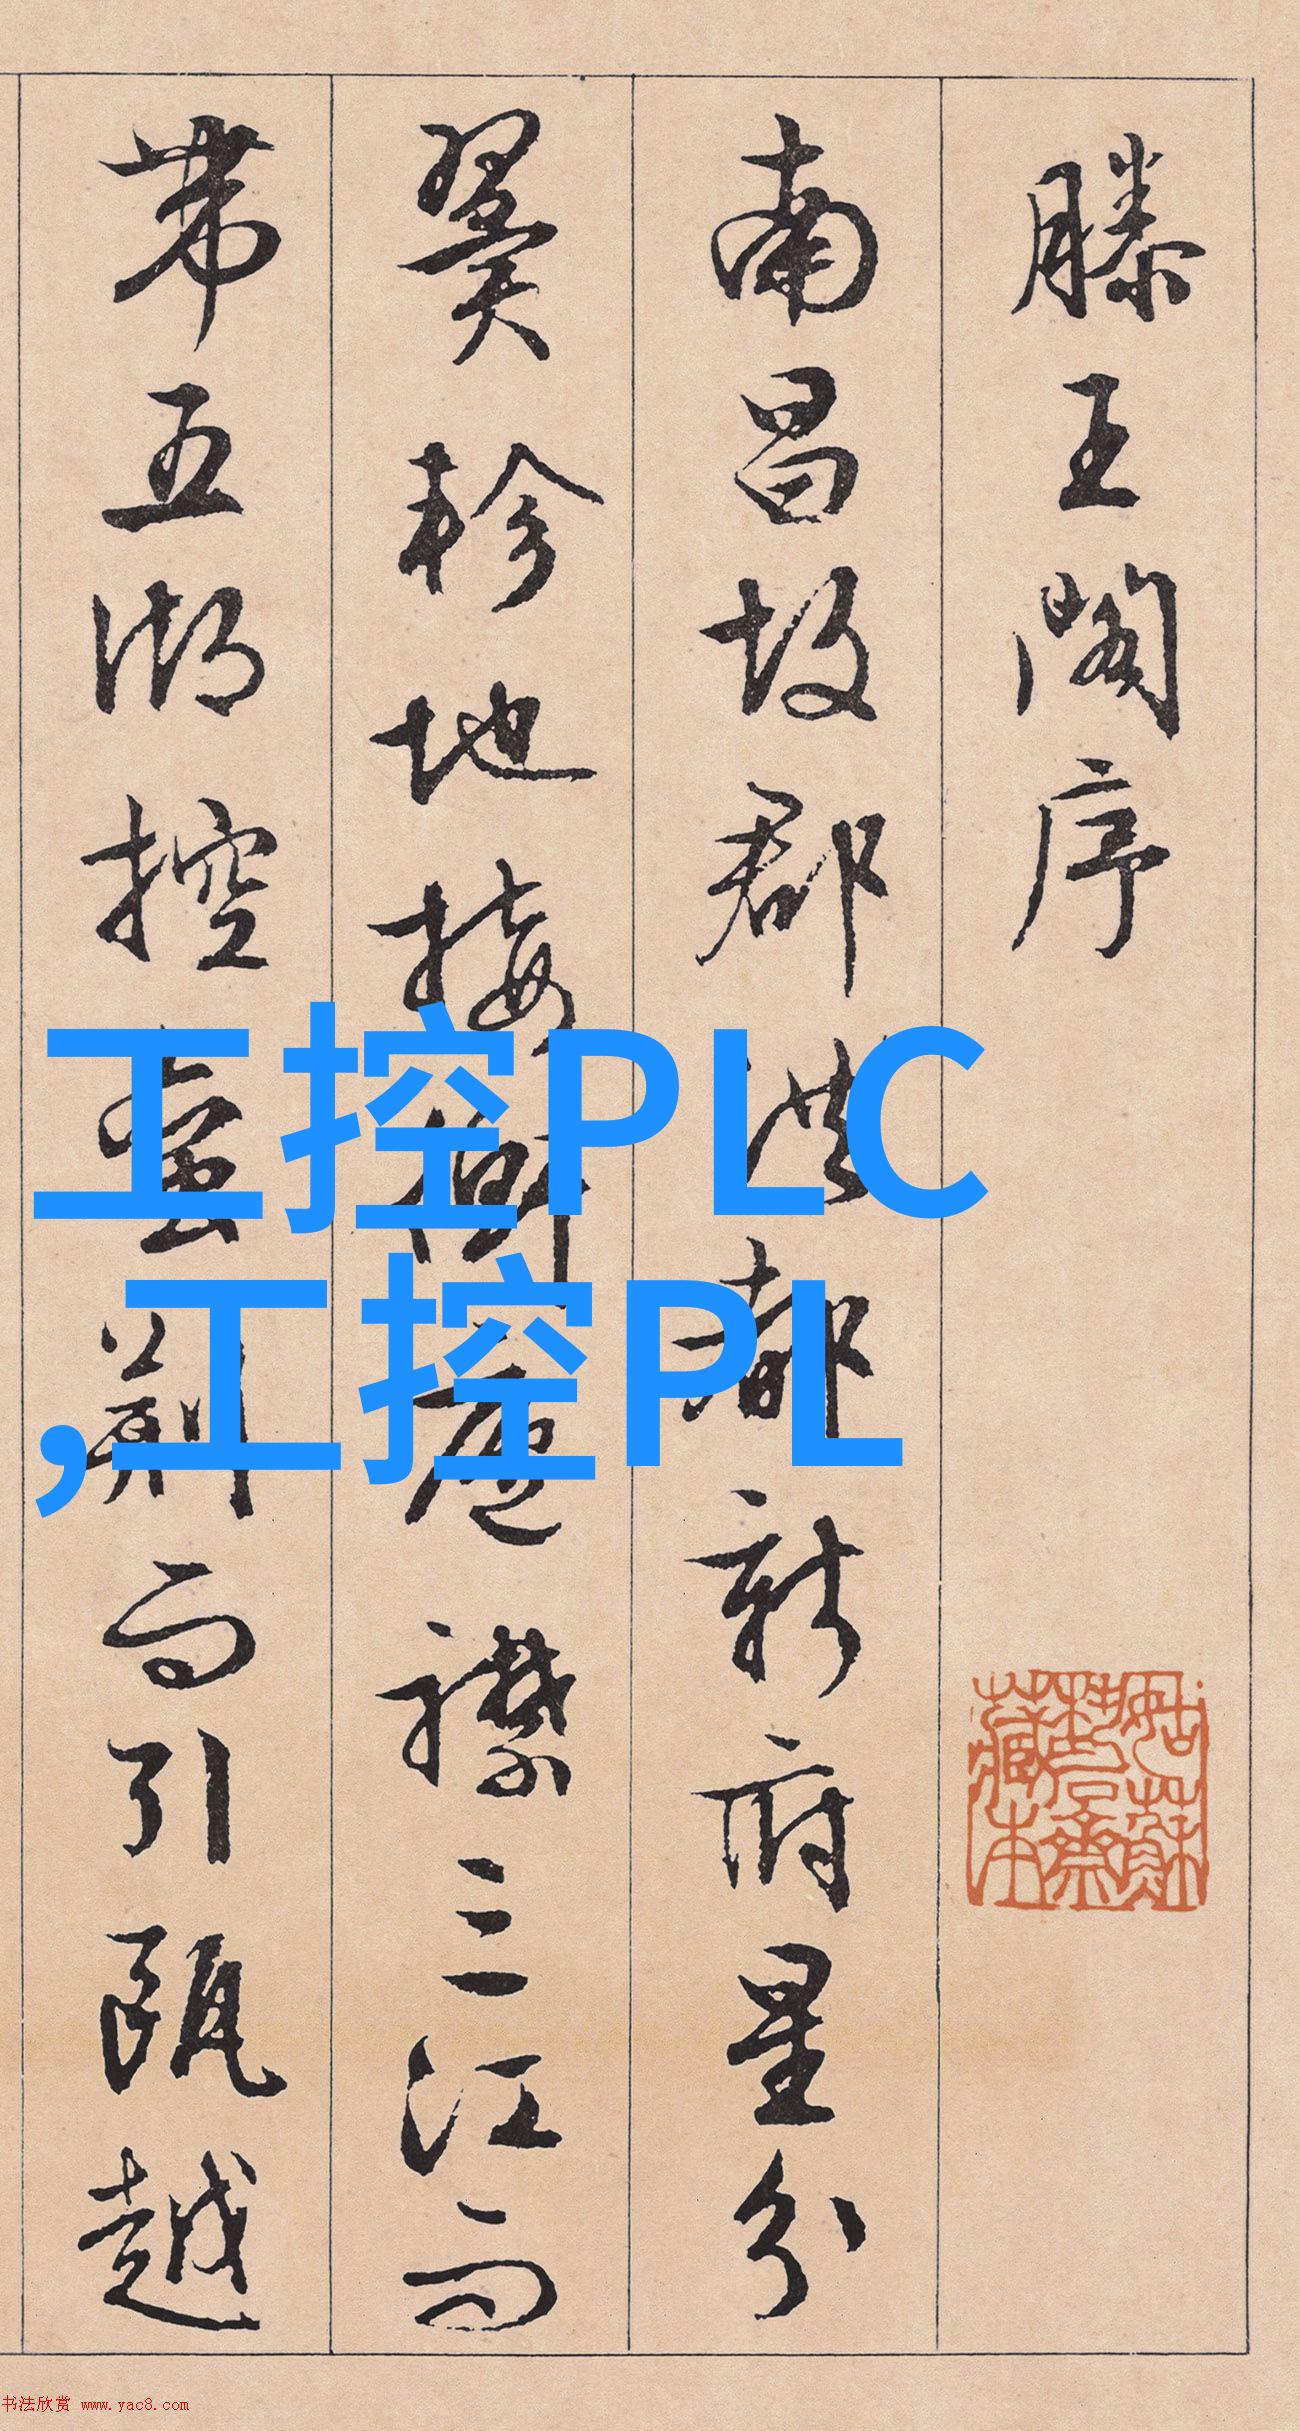 滕王閣序
南昌故郡洪都新府星分
翼軫地接衡廬襟三江而
帶五湖控蠻荊而引甌越
工控PLC
,工控PL
姑蘇
藏本
书法欣赏 www.yac8.com